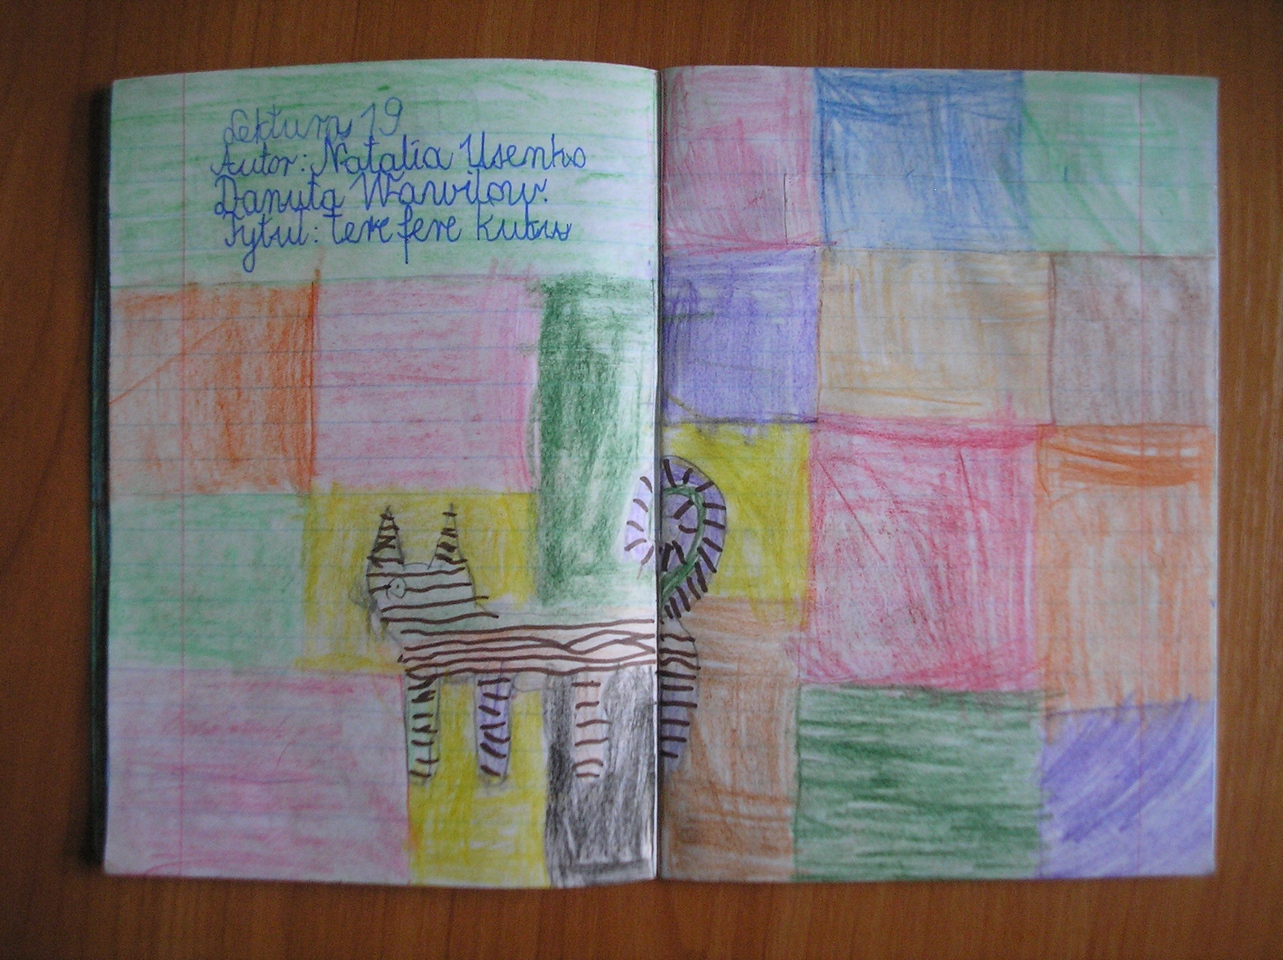 Lektura 19
Autor: Natalia Usenko
Danuta Wawiłow.
Tytuł: tere fere kuku